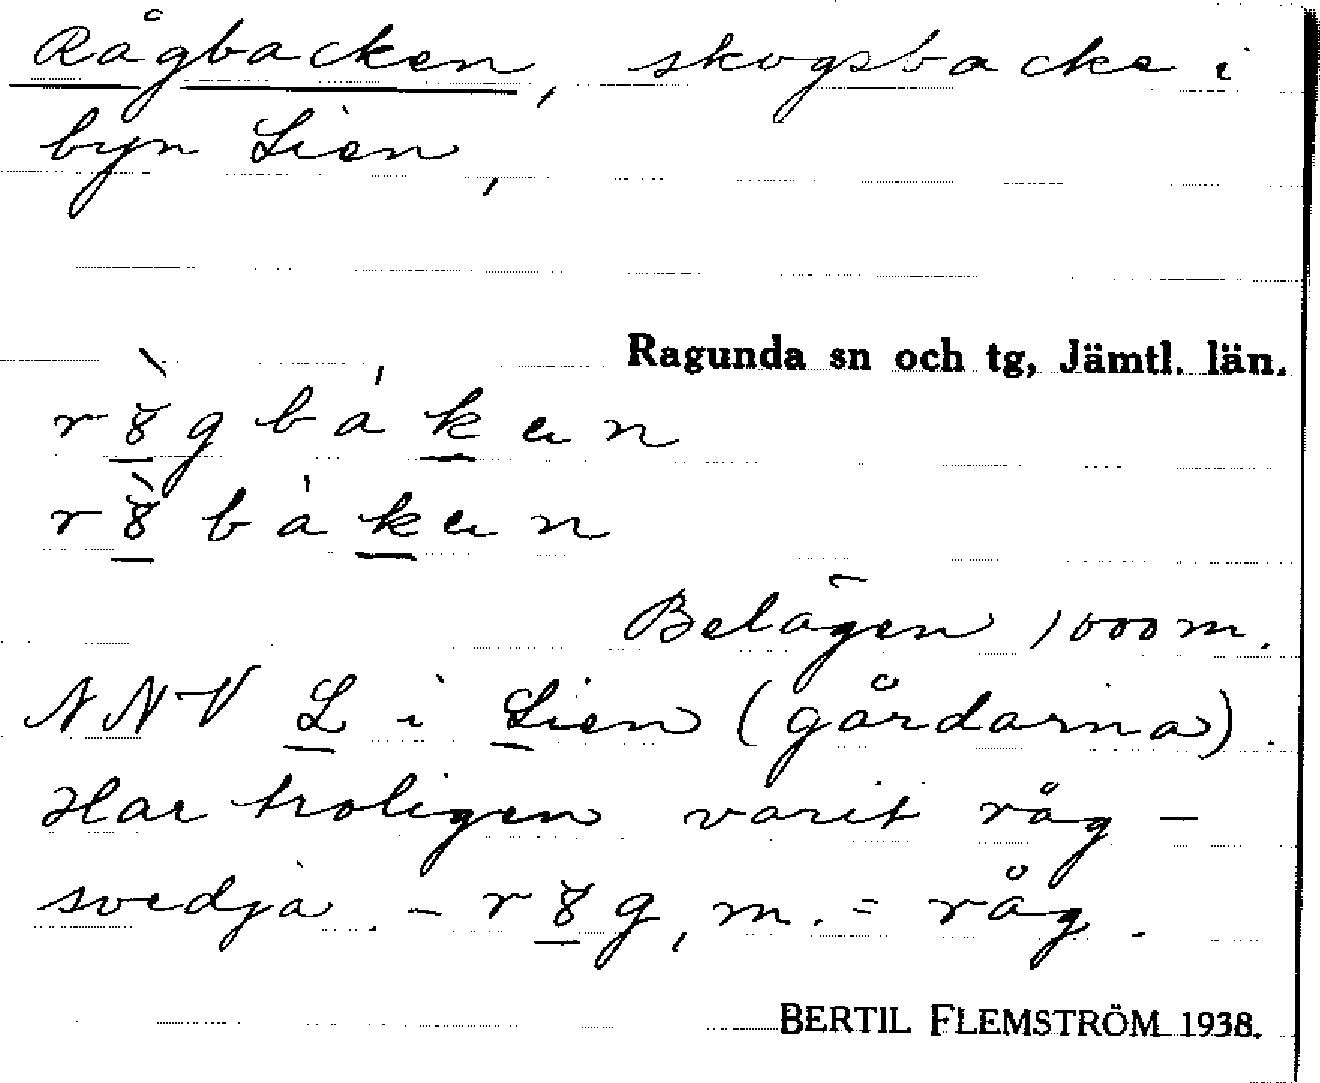 Rågbacken, skogsbacke i
byn Lien,
Ragunda sn och tg, Jämtl. län.
Belägen 1000 m.
NNV L i Lien (gårdarna)
Har troligen varit råg-
svedja. - r8g, m. = råg.
BERTIL FLEMSTRÖM 1938.